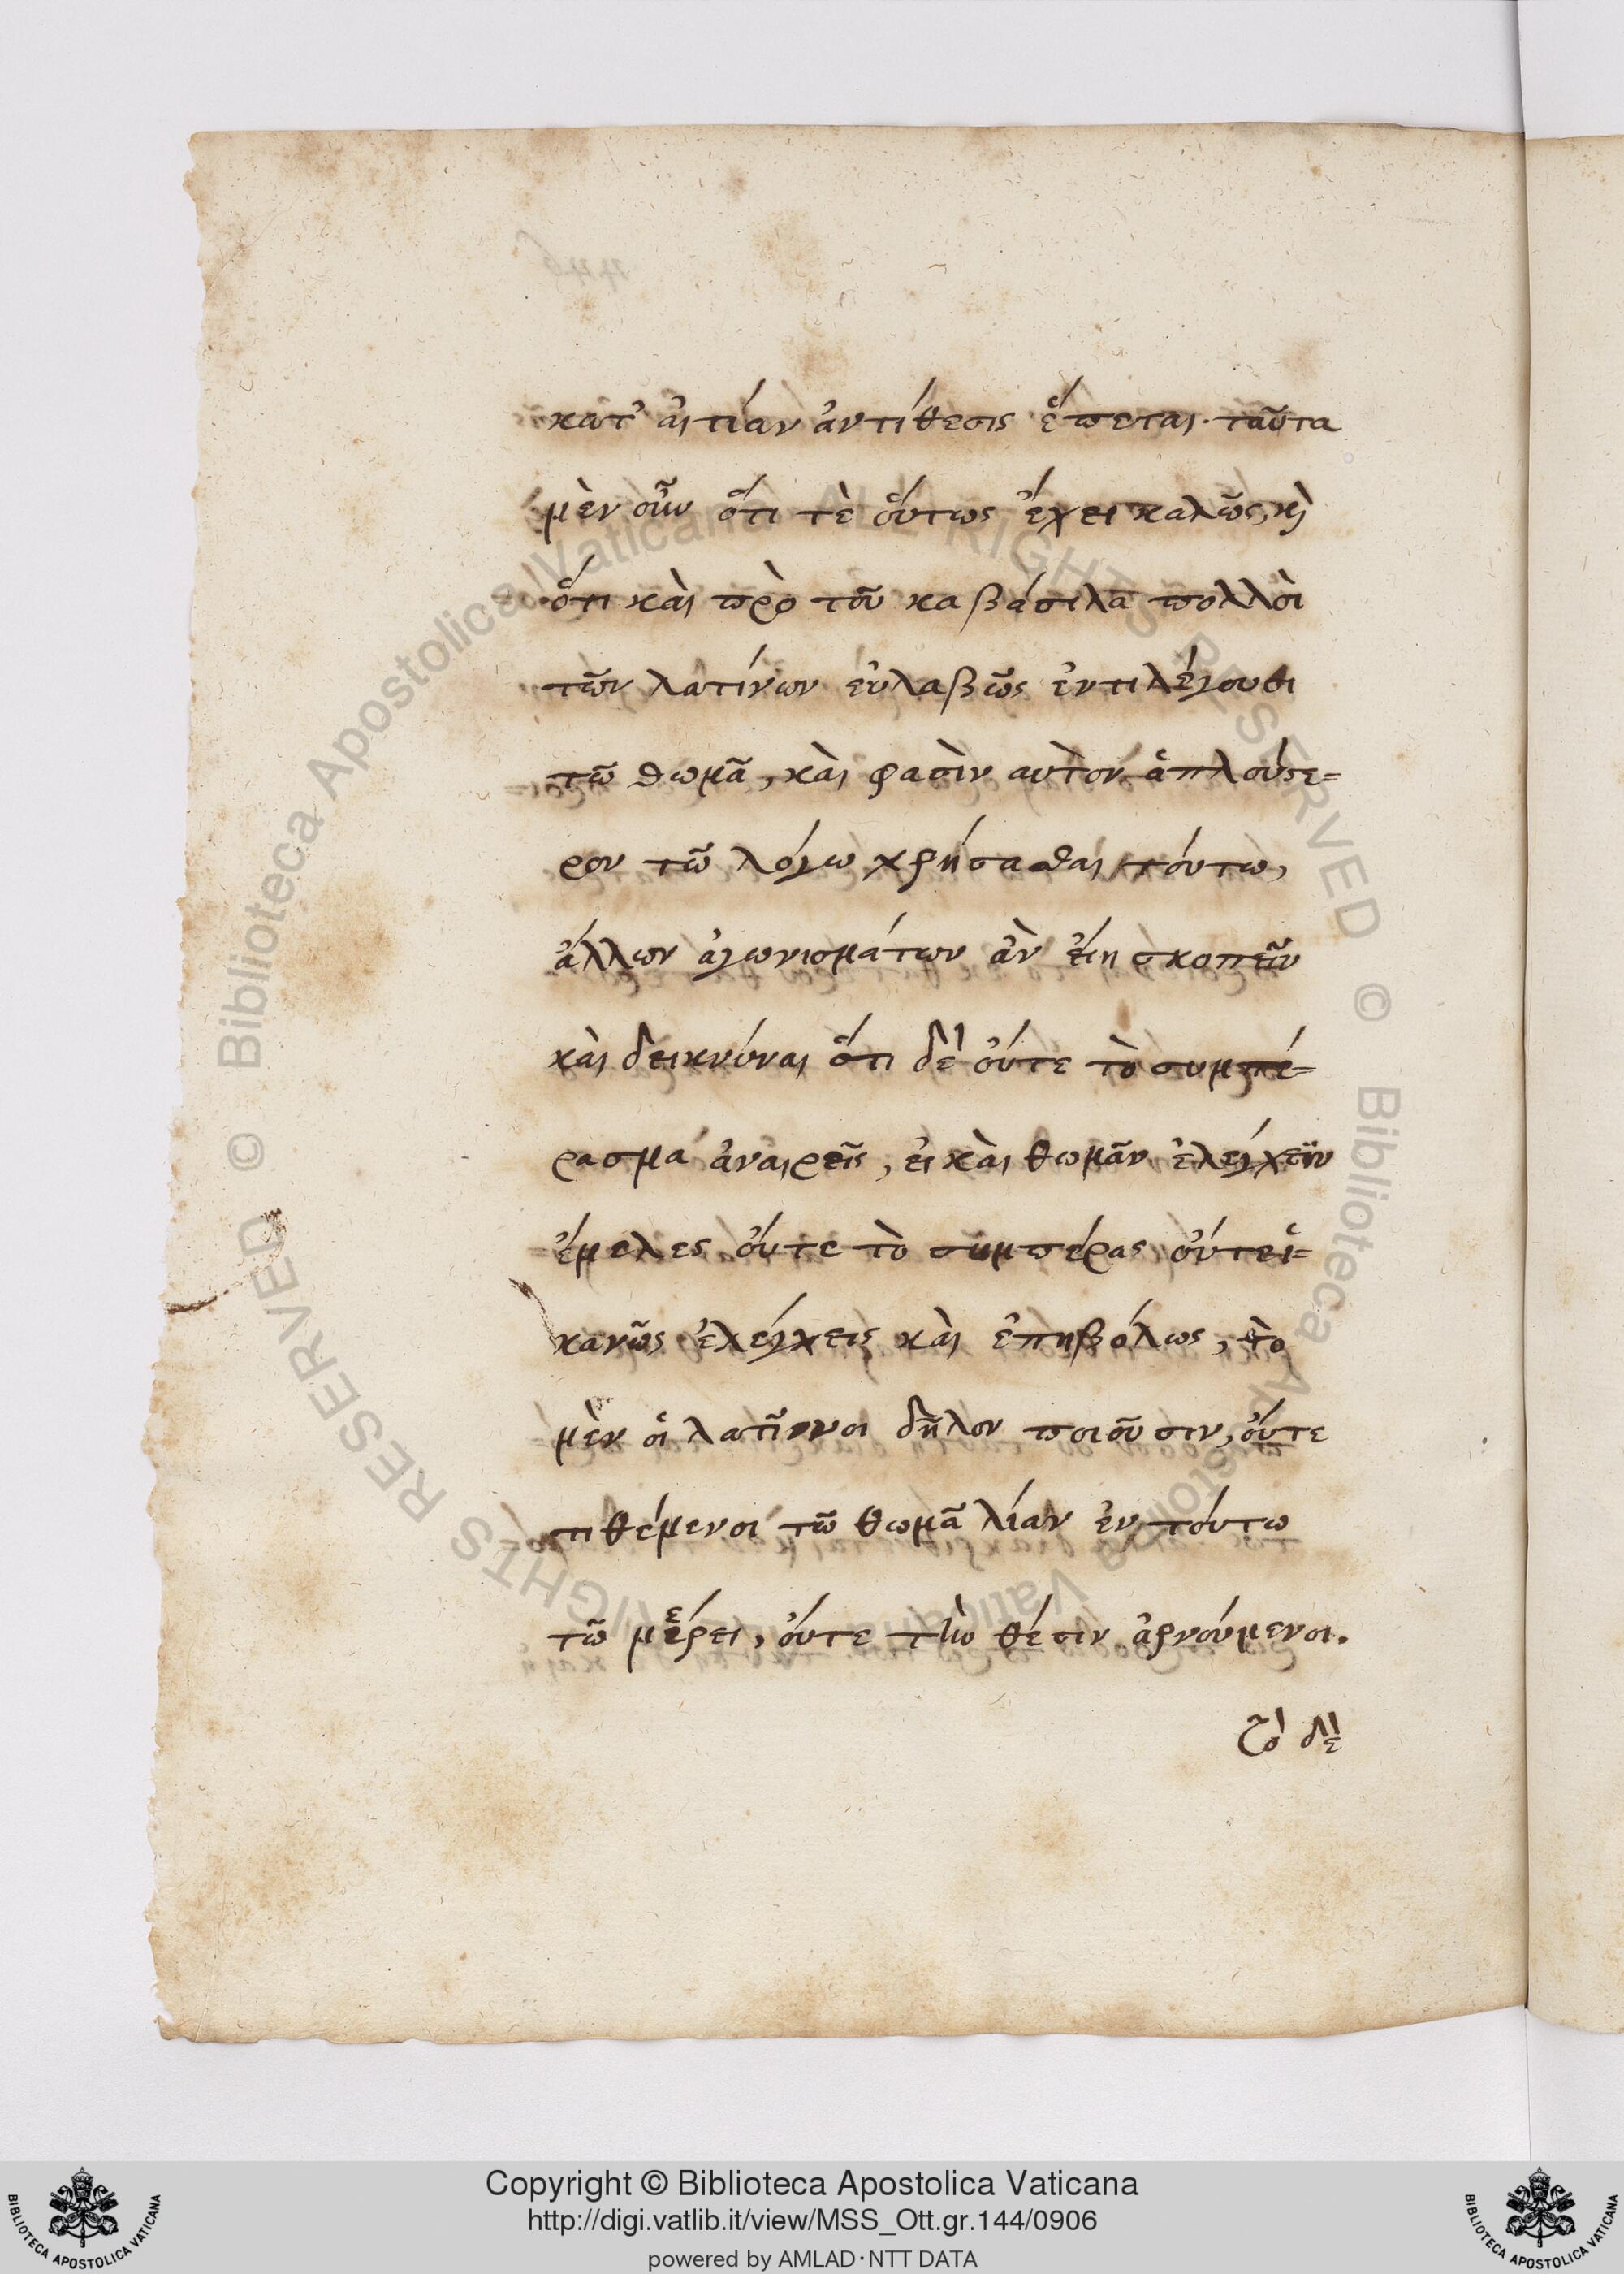 κατ' ἀιτίαν ἀντίθεσις ἕπεται. ταῦτα
μὲν οὖν ὅτι τὲ ὅυτως ἔχει καλῶς, κὶ
ὅτι κὰι πρὸ τοῦ καβάσιλα πολλὸι
τῶν λατίνων εὐλαβῶς ἐντιλέγουσι
τῶ θωμᾶ, κὰι φασὶν αυτὸν ἁπλούστε=
ρον τῶ λόγω χρήσασθαι τόυτω,
ἄλλων ἀγωνισμάτων ἂν ἔιη σκοπεῖν
κὰι δεικνύναι ὅτι δὲ ὄυτε τὸ συμπέ=
ρασμα ἀναιρεῖς, ἐι κὰι θωμᾶν ἐλέγχειν
ἔμελες ὄυτε τὸ συμπέρας ὄυτε ἱ=
κανῶς ἐλέγχεις κὰι ἐπηβόλως, τὸ
μὲν ὁι λατῖνοι δῆλον ποιοῦσιν, ὄυτε
τιθέμενοι τῶ θωμᾶ λίαν ἐν τόυτω
τῶ μέρει, ὄυτε τὴν θέσιν ἀρνούμενοι.
τὸ δὲ
Copyright © Biblioteca Apostolica Vaticana
http://digi.vatlib.it/view/MSS_Ott.gr.144/0906
powered by AMLAD·NTT DATA
BIBLIOTECA APOSTOLICA VATICANA
BIBLIOTECA APOSTOLICA VATICANA
© Biblioteca Apostolica Vaticana ALL RIGHTS RESERVED
© Biblioteca Apostolica Vaticana ALL RIGHTS RESERVED